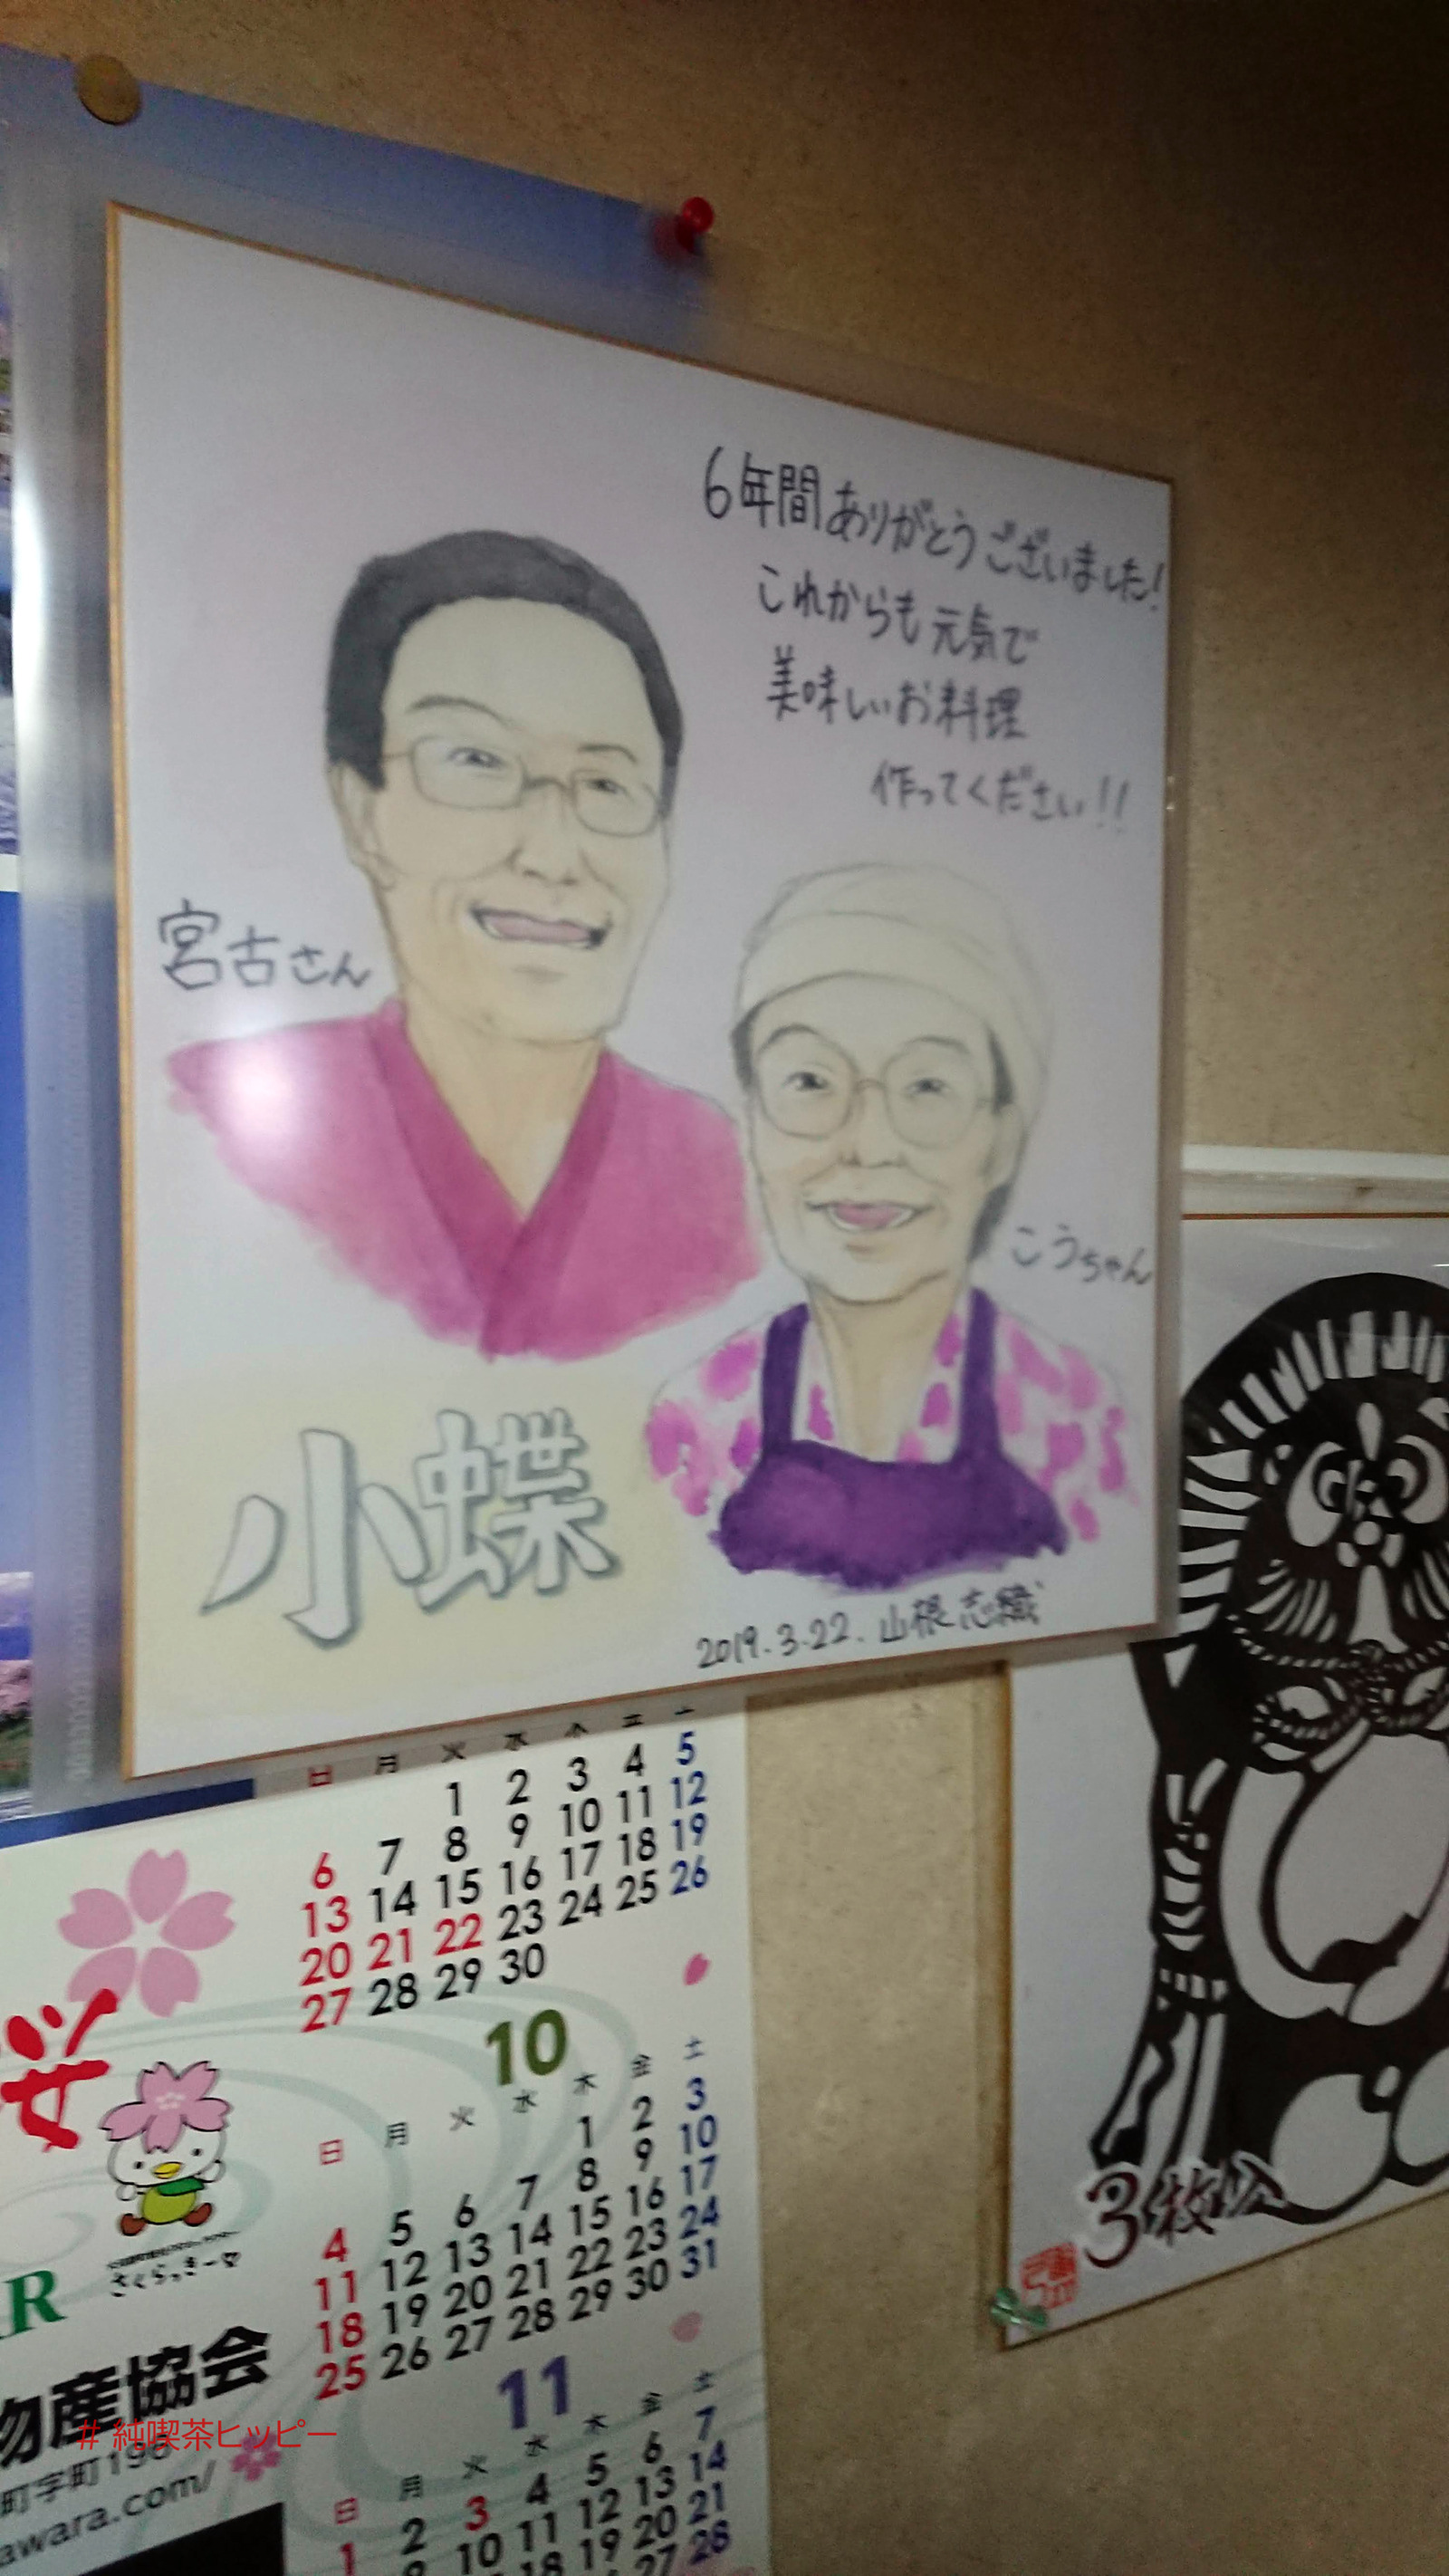 6年間ありがとうございました!
これからも元気で
美味しいお料理
作ってください!!
宮古さん
こうちゃん
小蝶
2019.3.22. 山根志織
日 月 火 水 木 金 土
1 2 3 4 5
6 7 8 9 10 11 12
13 14 15 16 17 18 19
20 21 22 23 24 25 26
27 28 29 30
10
日 月 火 水 木 金 土
1 2 3
4 5 6 7 8 9 10
11 12 13 14 15 16 17
18 19 20 21 22 23 24
25 26 27 28 29 30 31
11
日 月 火 水 木 金 土
1 2 3 4 5 6 7
9 10 11 12 13 14
18 19 20 21
27 28
桜
さくらっきー
R
物産協会
町字町196
awara.com/
3枚
# 純喫茶ヒッピー